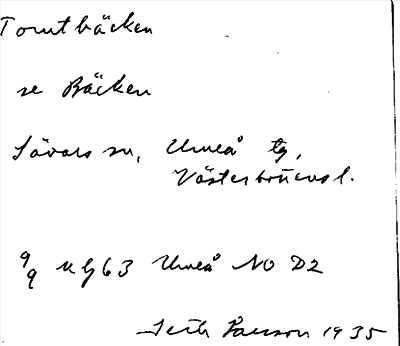 Tomtbäcken
se Bäcken
Sävars sn, Umeå tg,
Västerbottens l.
9/9 u G 63 Umeå NO D2
Seth Larsson 1935